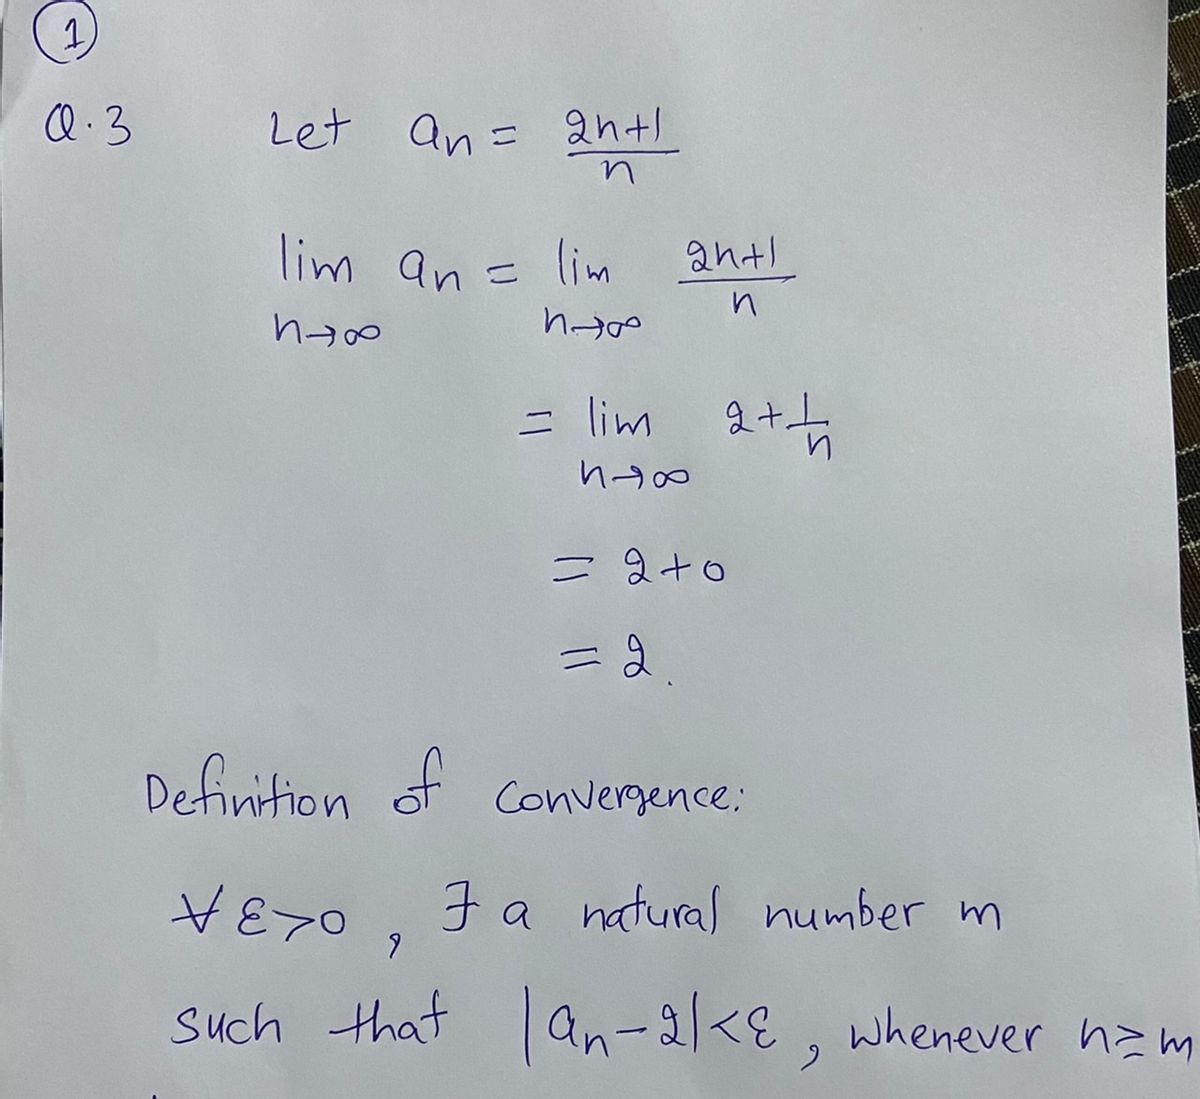 1
Q.3 Let an = 2n+1/n
lim n→∞ an = lim n→∞ 2n+1/n
= lim n→∞ 2+1/n
= 2+0
= 2.
Definition of convergence:
∀ ε>0, ∃ a natural number m
such that |an-2|<ε, whenever n≥m